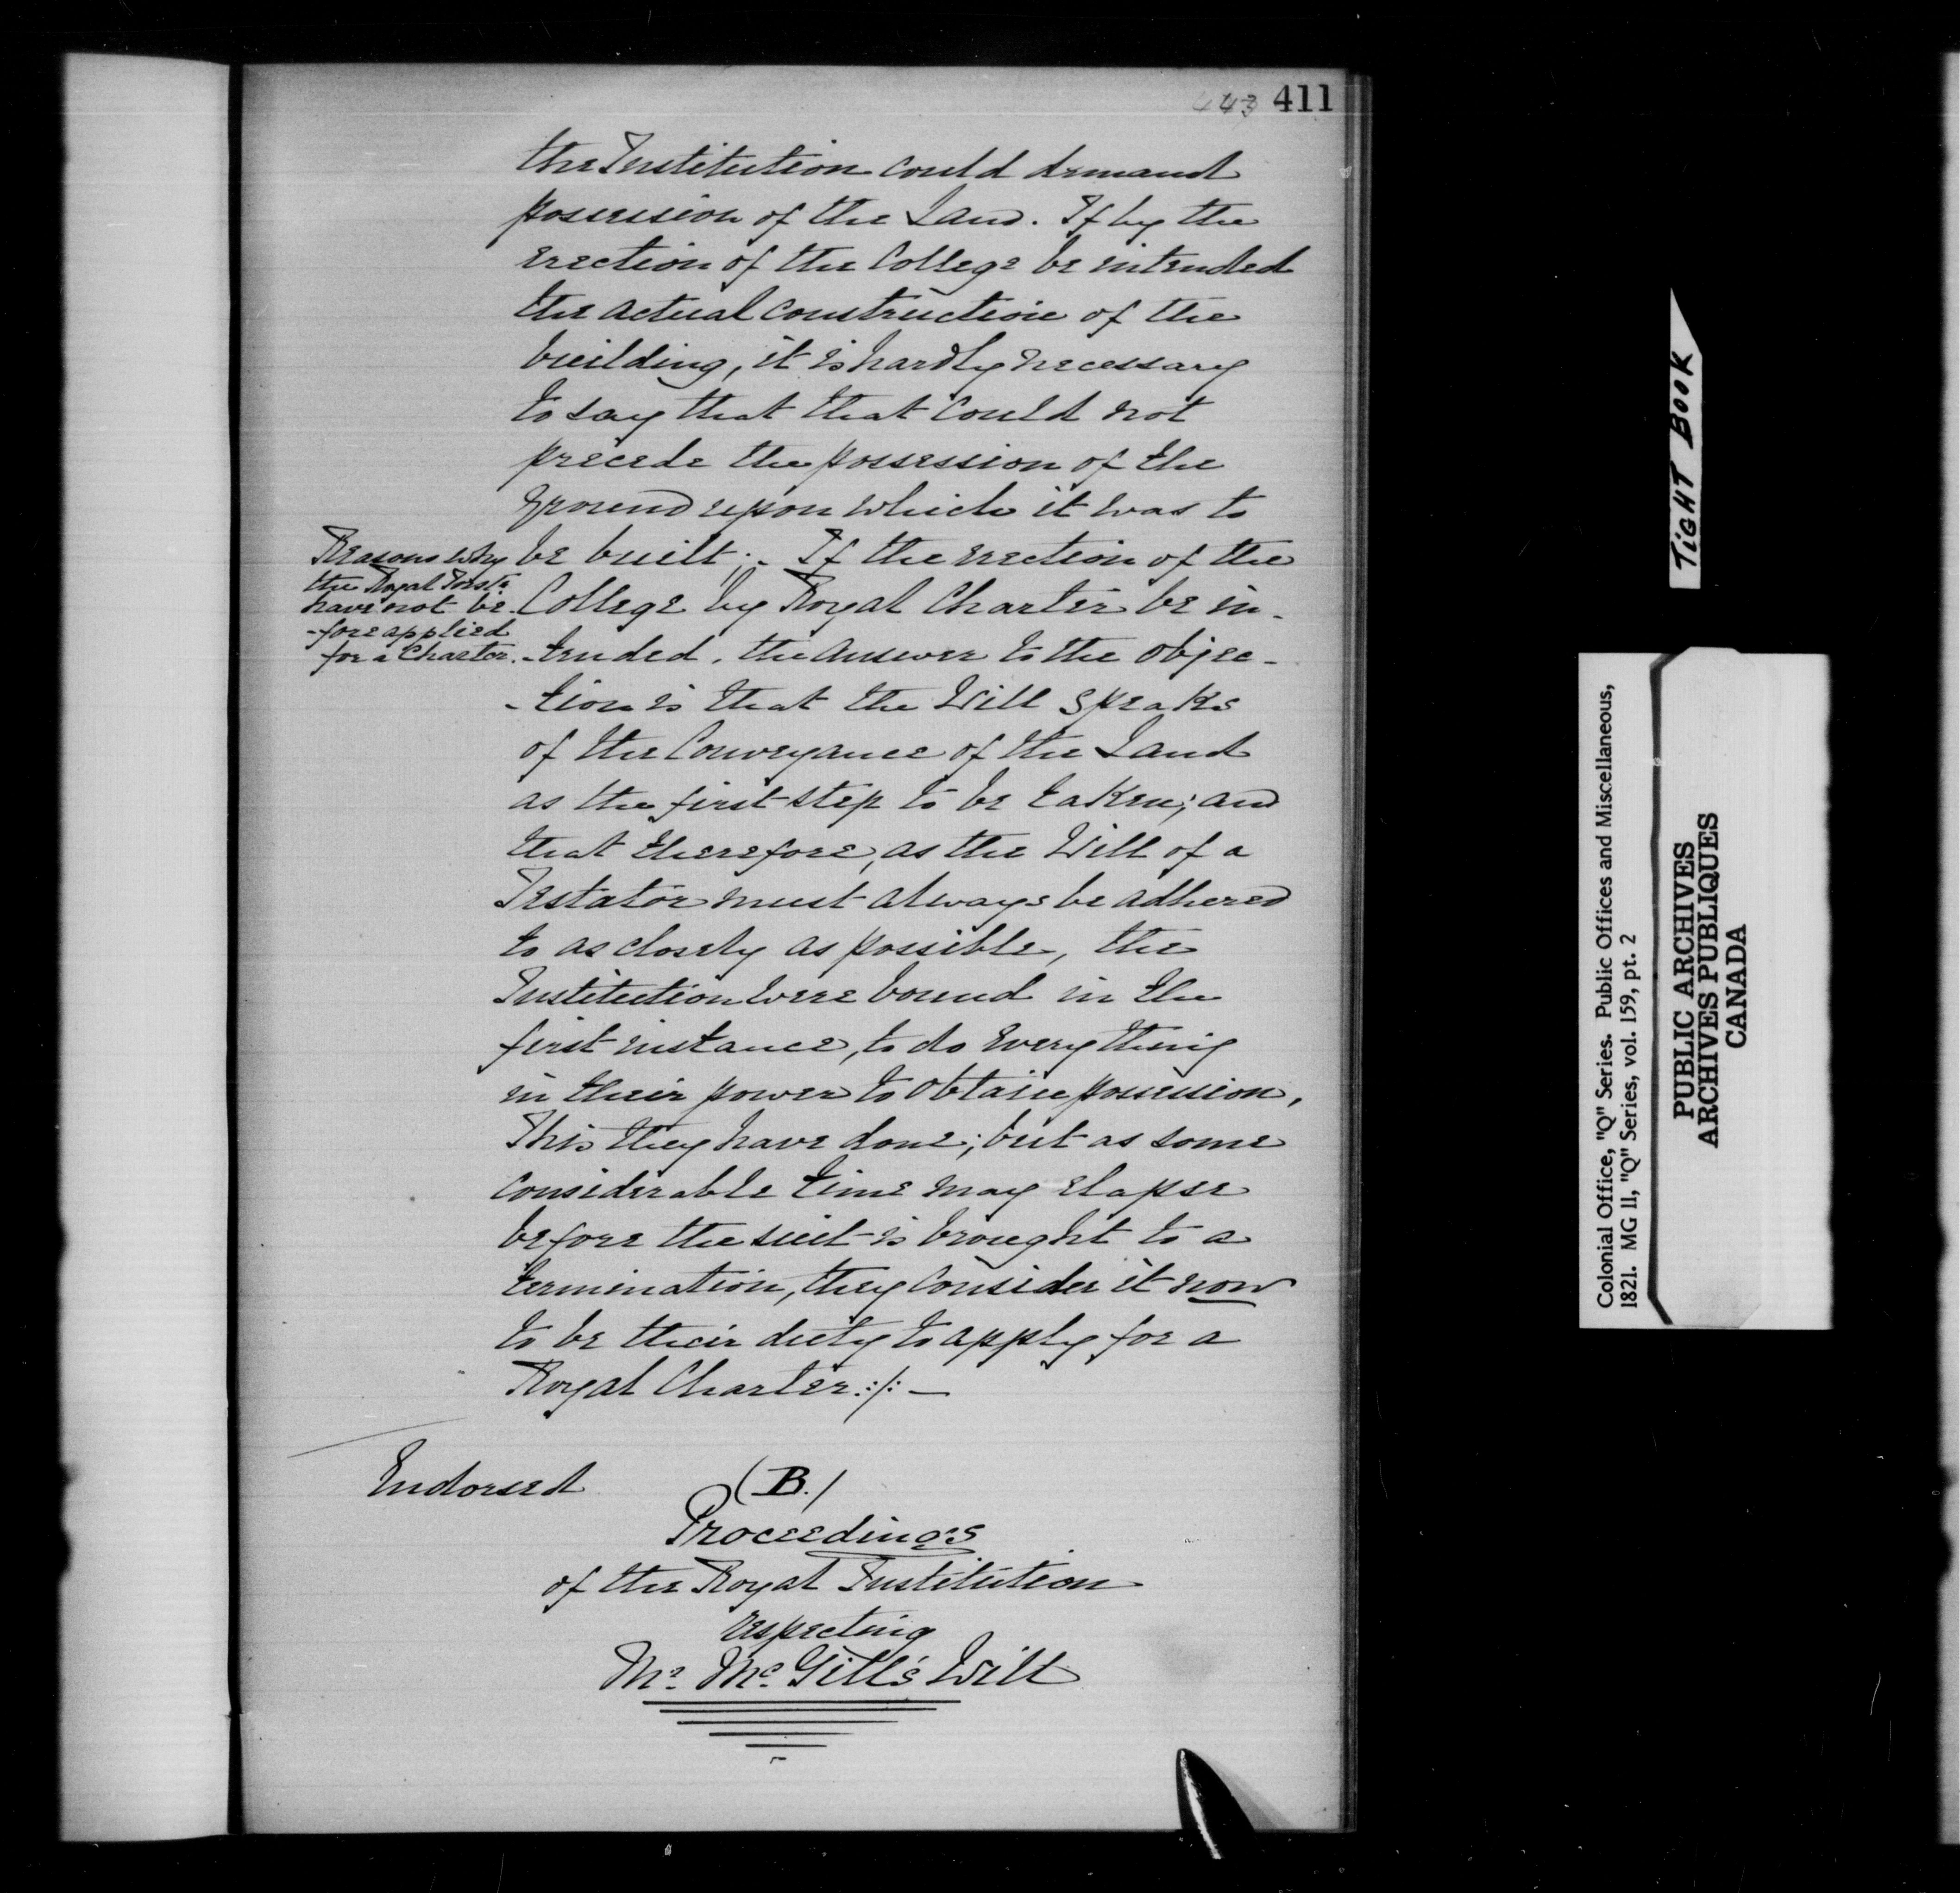 443 411
the Institution could demand
possession of the Land. If by the
erection of the College be intended
the actual construction of the
building, it is hardly necessary
to say that that could not
precede the possession of the
ground upon which it was to
be built;- If the erection of the
College by Royal Charter be in-
-tended, the answer to the objec-
-tion is that the Will speaks
of the Conveyance of the Land
as the first step to be taken; and
that therefore, as the Will of a
Testator must always be adhered
to as closely as possible, the
Institution were bound in the
first instance, to do everything
in their power to obtain possession,
This they have done; but as some
considerable time may elapse
before the suit is brought to a
termination, they consider it now
to be their duty to apply for a
Royal Charter:/:—
Reasons why
the Royal Instn
have not be
-fore applied
for a Charter.
Endorsed
(B.)
Proceedings
of the Royal Institution
respecting
Mr. Mc. Gill's Will
TIGHT BOOK
Colonial Office, "Q" Series. Public Offices and Miscellaneous,
1821. MG 11, "Q" Series, vol. 159, pt. 2
PUBLIC ARCHIVES
ARCHIVES PUBLIQUES
CANADA